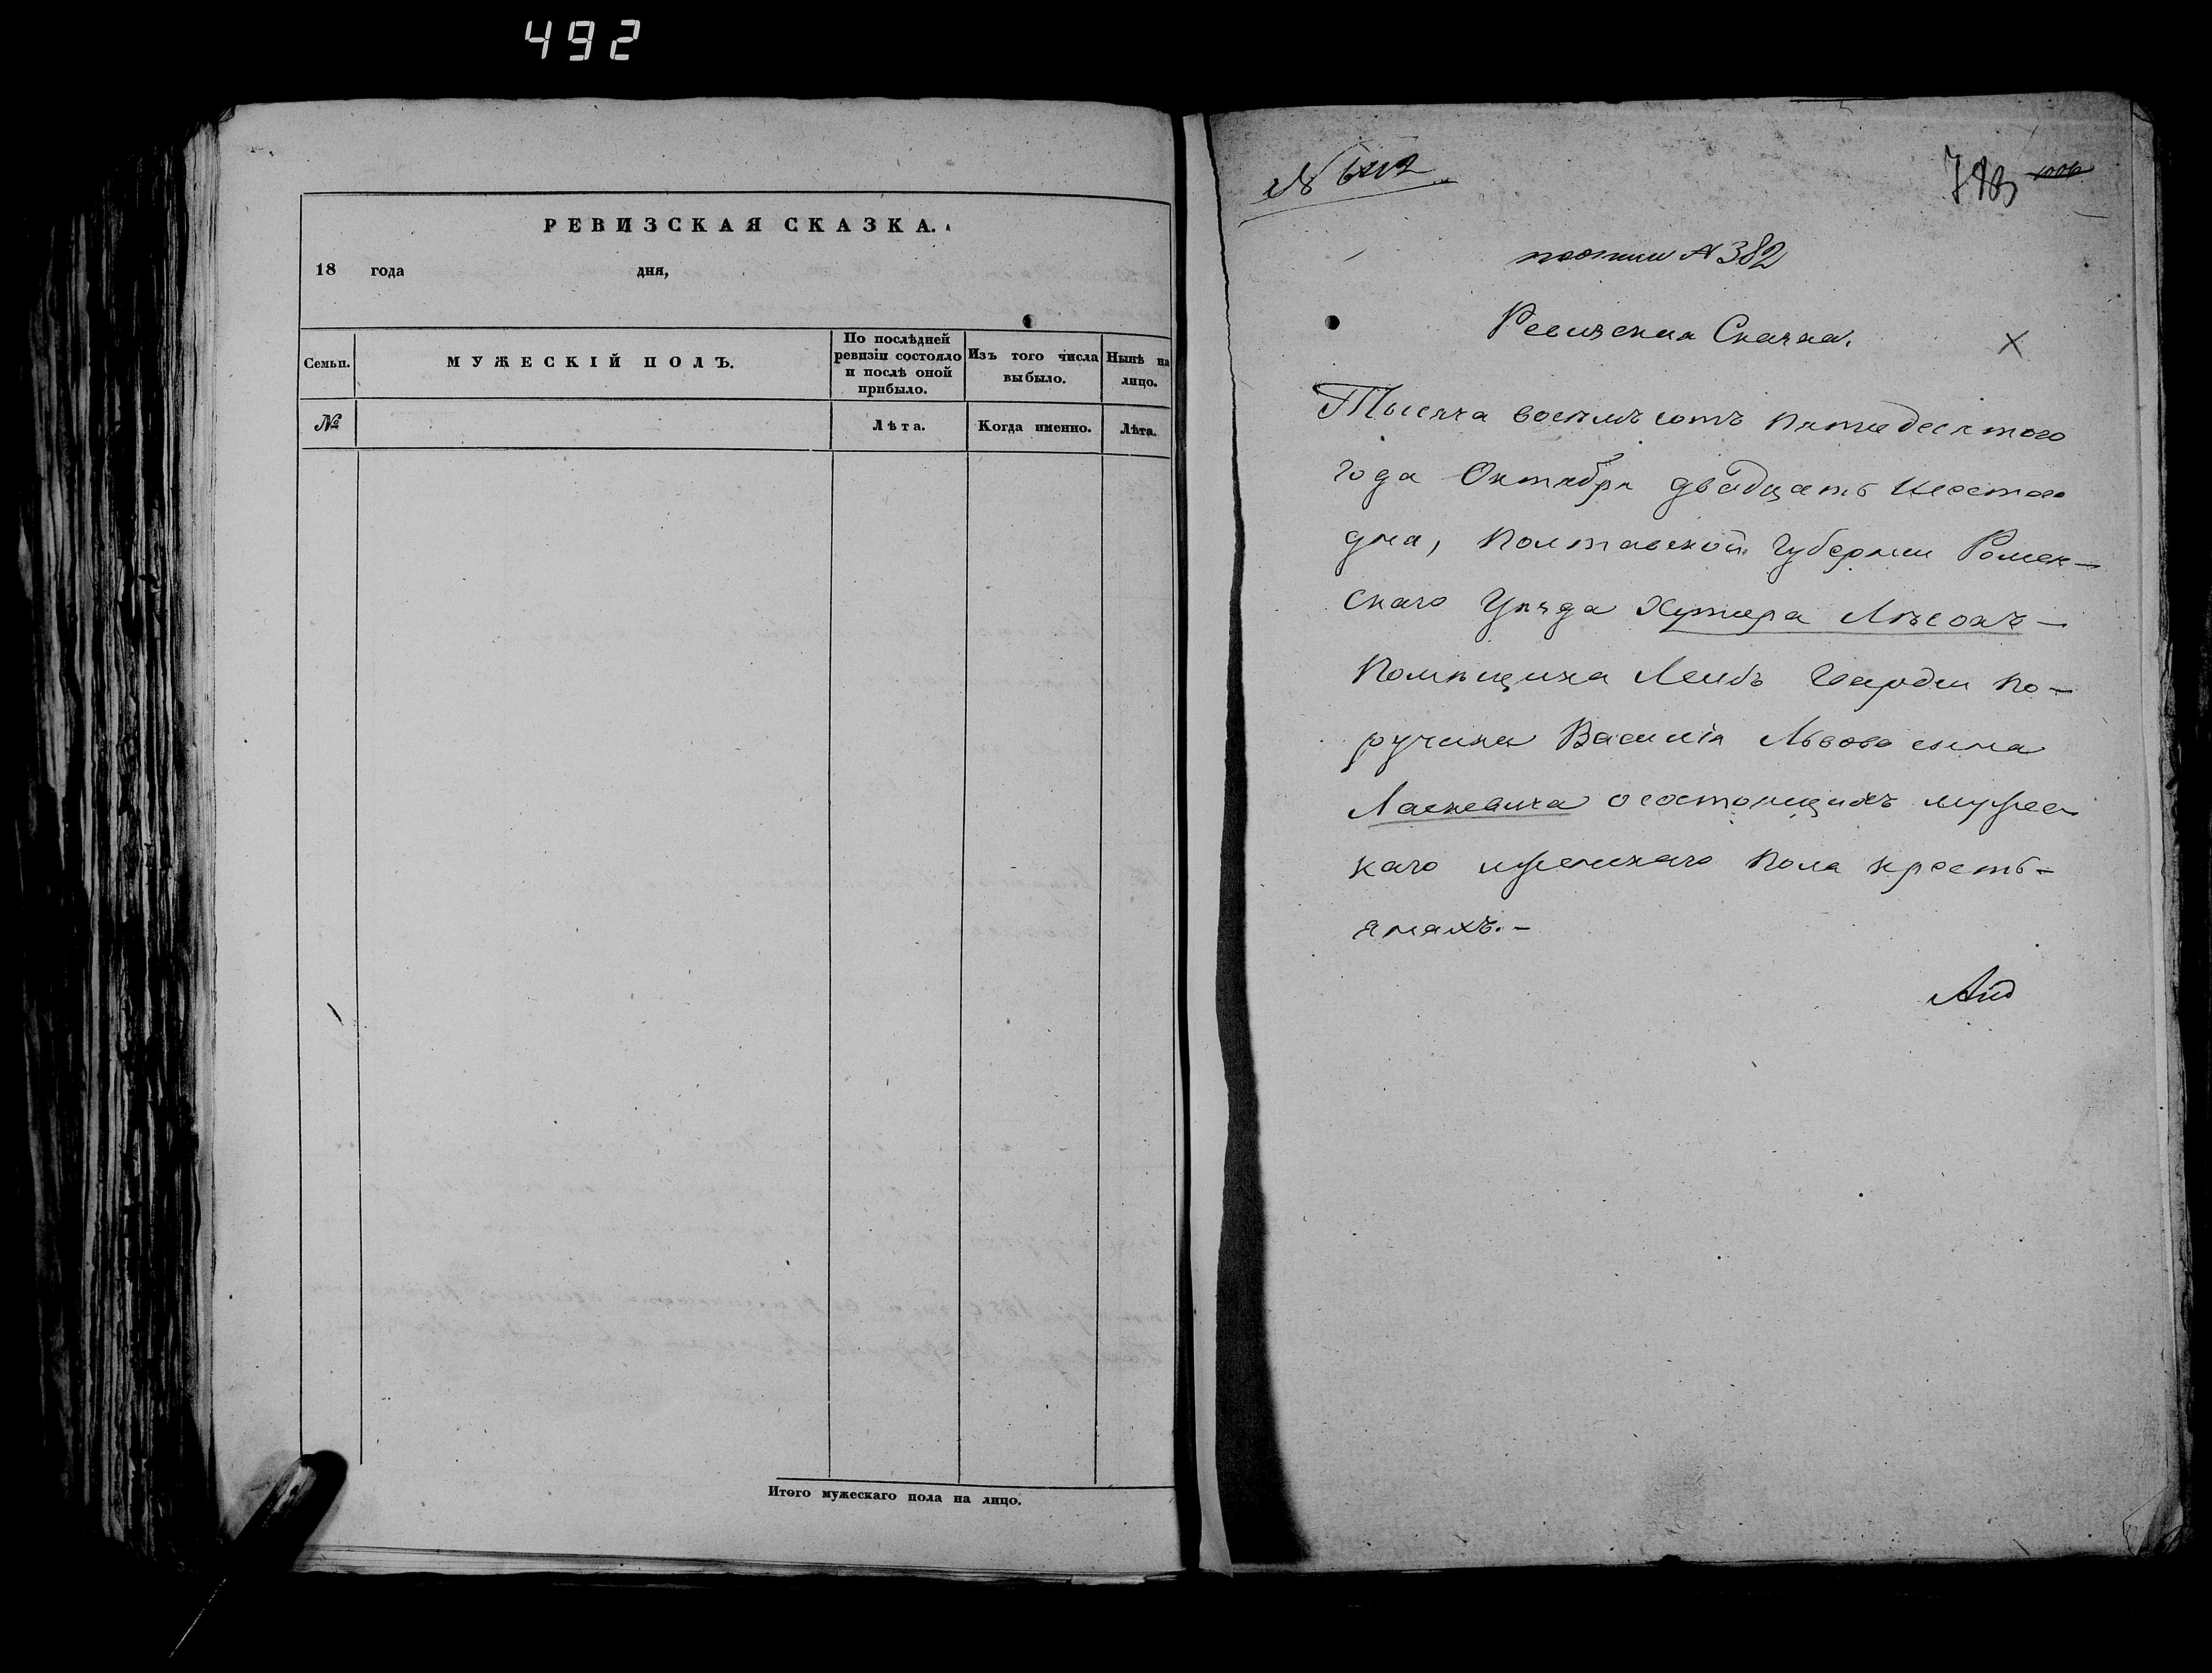 492
РЕВИЗСКАЯ СКАЗКА.
18 года дня,
Семьи.
МУЖЕСКІЙ ПОЛЪ.
По послѣдней
ревизіи состояло
и послѣ оной
прибыло.
Изъ того числа
выбыло.
Нынѣ на
лицо.
№
Лѣта.
Когда именно.
Лѣта.
Итого мужескаго пола на лицо.
№
783 1006
№ 382
Ревизская Сказка.
Тысяча восемъ сотъ Пятидесятого
года Октября двадцать шестого
дня, Полтавской Губерніи Ромен-
скаго Уѣзда Хутора Лѣсокъ -
Помѣщика Лейбъ Гвардіи По-
ручика Василія Львова сына
Ласкевича о состоящихъ мужес
каго и женскаго Пола кресть-
янахъ. -